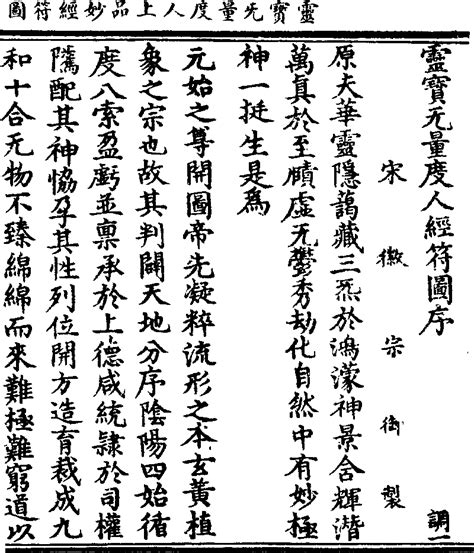 靈寶无量度人上品妙經符圖
靈寶无量度人經符圖序
調一
宋徽宗御製
原夫華靈隱藹藏三炁於鴻濛神景含輝潛
萬真於至賾虛无鬱秀劫化自然中有妙極
神一挺生是爲
元始之尊開圖帝先凝粹流形之本玄黃植
象之宗也故其判闢天地分序陰陽四始循
度八索盈虧並稟承於上德咸統隸於司權
騭配其神恊孕其性列位開方造育裁成九
和十合无物不臻綿綿而來難極難窮道以